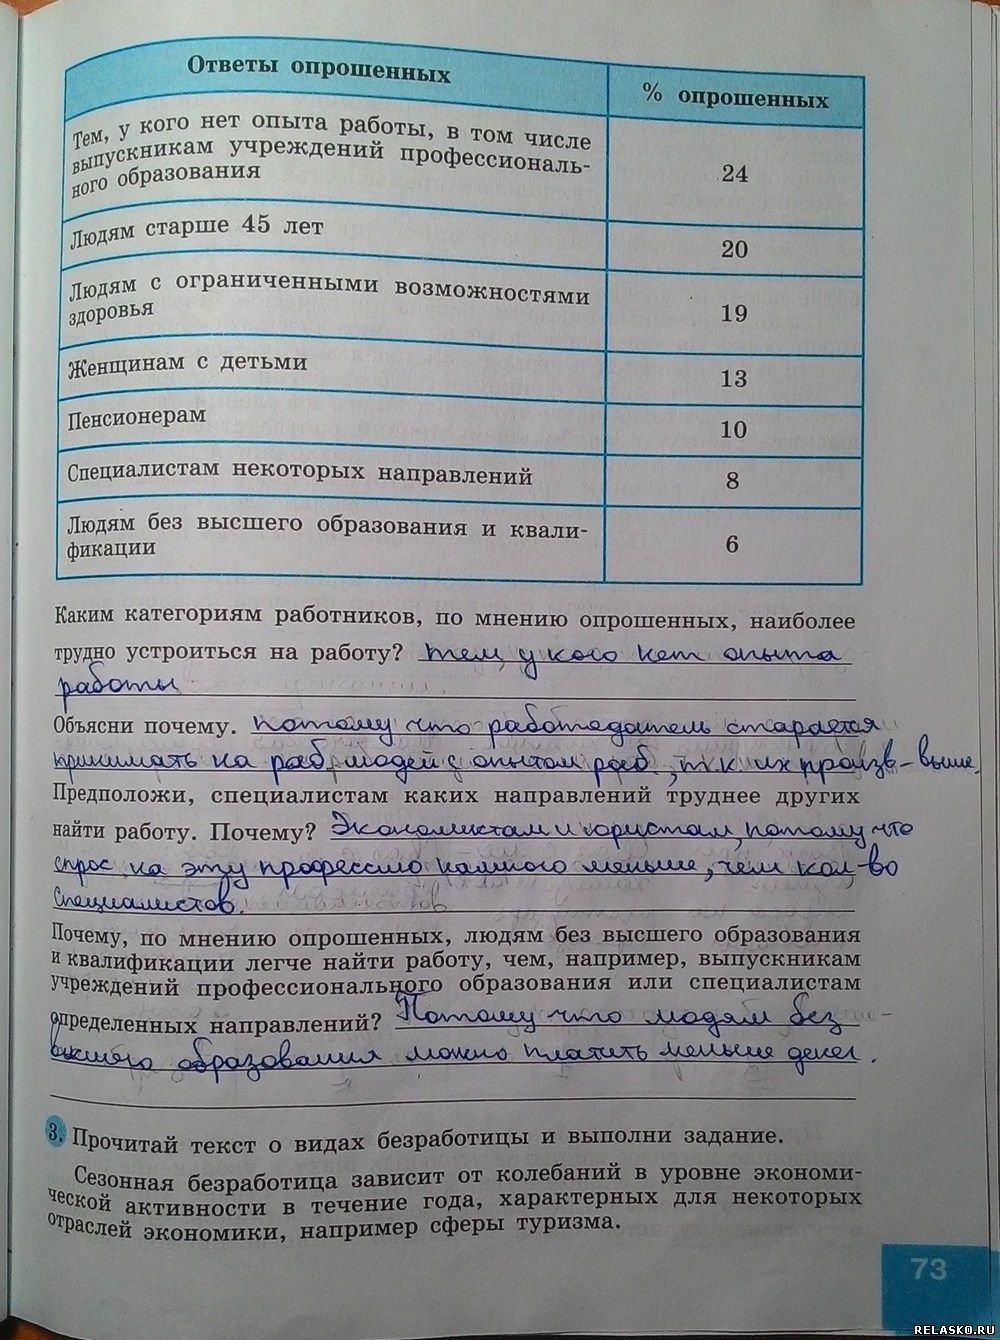 Ответы опрошенных % опрошенных
Тем, у кого нет опыта работы, в том числе
выпускникам учреждений профессиональ-
ного образования 24
Людям старше 45 лет 20
Людям с ограниченными возможностями
здоровья 19
Женщинам с детьми 13
Пенсионерам 10
Специалистам некоторых направлений 8
Людям без высшего образования и квали-
фикации 6
Каким категориям работников, по мнению опрошенных, наиболее
трудно устроиться на работу? тем, у кого нет опыта
работы
Объясни почему. потому что работодатель старается
принимать на раб. людей с опытом раб., т.к. их произв-выше.
Предположи, специалистам каких направлений труднее других
найти работу. Почему? Экономистам и юристам, потому что
спрос на эту профессию намного меньше, чем кол-во
специалистов.
Почему, по мнению опрошенных, людям без высшего образования
и квалификации легче найти работу, чем, например, выпускникам
учреждений профессионального образования или специалистам
определенных направлений? Потому что людям без
высшего образования можно платить меньше денег.
3. Прочитай текст о видах безработицы и выполни задание.
Сезонная безработица зависит от колебаний в уровне экономи-
ческой активности в течение года, характерных для некоторых
отраслей экономики, например сферы туризма.
73
RELASKO.RU